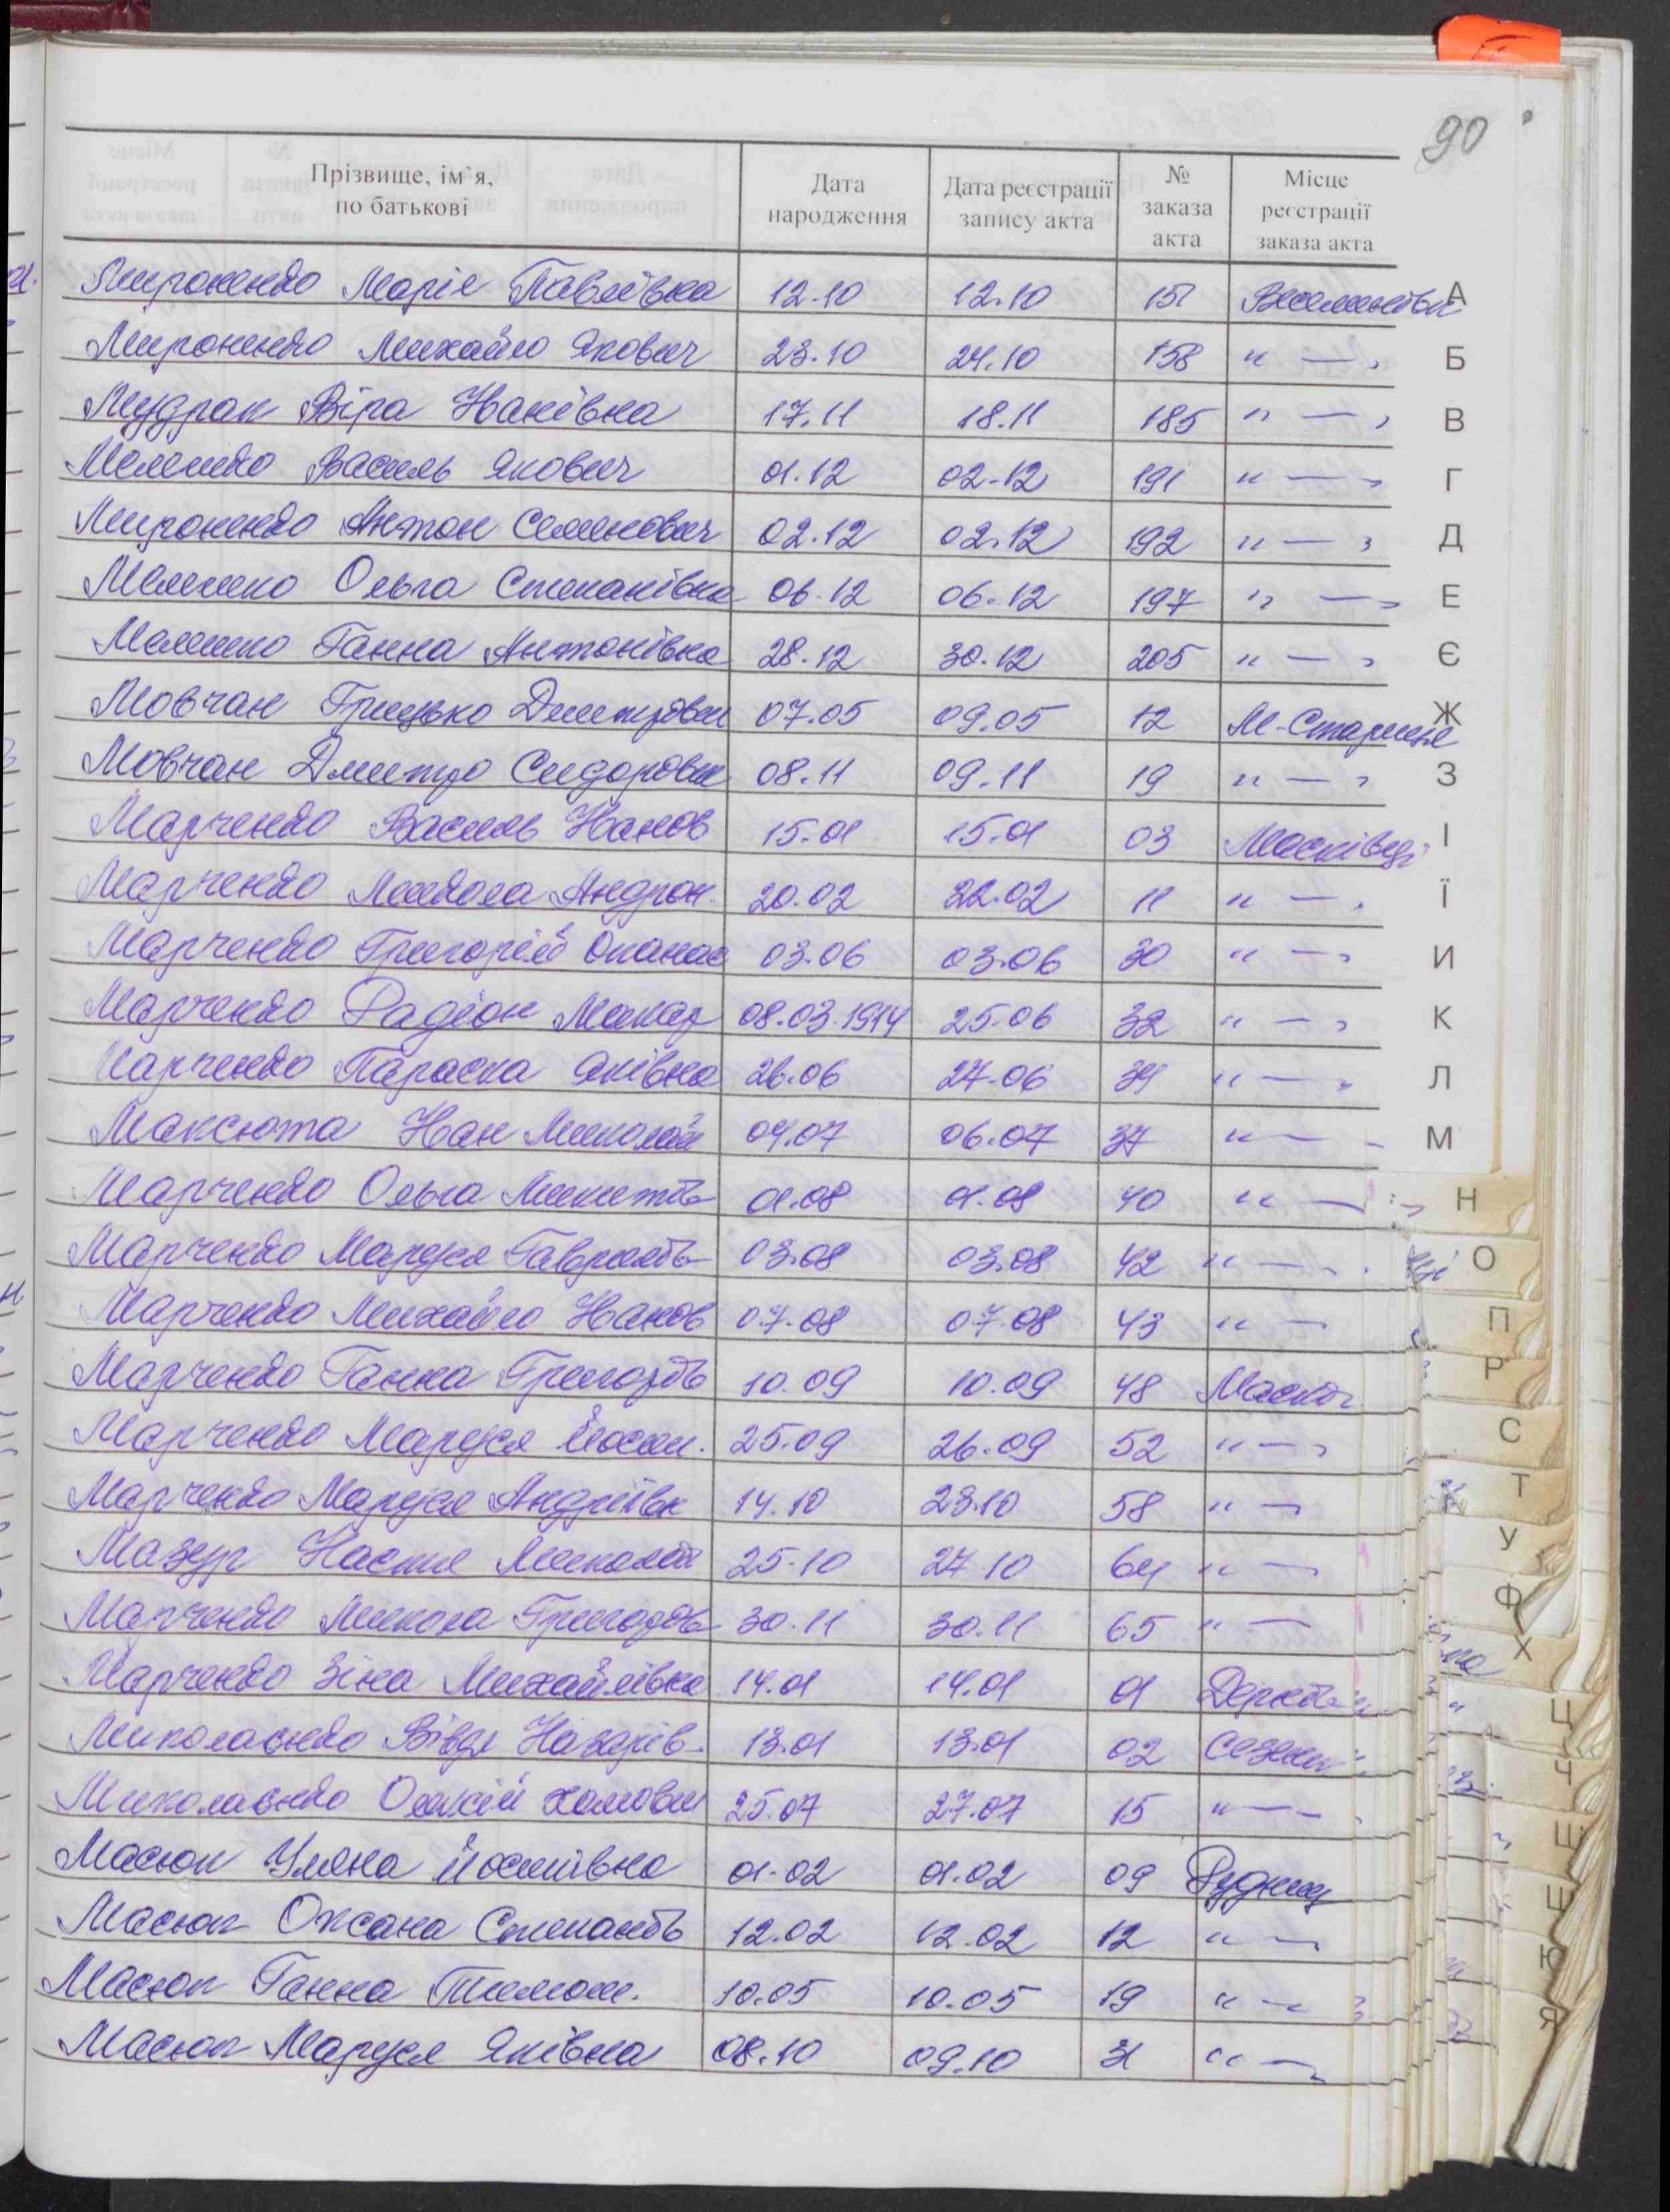 90
Прізвище, ім`я, по батькові Дата народження Дата реєстрації запису акта № заказа акта Місце реєстрації заказа акта
Мироненко Марія Павлівна 12.10 12.10 151
Мироненко Михайло Якович 23.10 24.10 158 " — "
Мудрак Віра Іванівна 17.11 18.11 185 " — "
Мелешко Василь Якович 01.12 02.12 191 " — "
Мироненко Антон Семенович 02.12 02.12 192 " — "
Мелешко Ольга Степанівна 06.12 06.12 197 " — "
Мелешко Ганна Антонівна 28.12 30.12 205 " — "
Мовчан Грицько Дмитрович 07.05 09.05 12 М-Стариця
Мовчан Дмитро Сидорович 08.11 09.11 19 " — "
Марченко Василь Іванов 15.01 15.01 03 Масківці
Марченко Микола Андрон. 20.02 22.02 11 " — "
Марченко Григорій Опанас 03.06 03.06 30 " — "
Марченко Радіон Макар 08.03.1914 25.06 32 " — "
Марченко Параска Яківна 26.06 27.06 34 " — "
Максюта Іван Миколай 04.07 06.07 37 " —
Марченко Ольга Микитів 01.08 01.08 40 " —
Марченко Маруся Гаврилів 03.08 03.08 42 " — "
Марченко Михайло Іванов 07.08 07.08 43 " —
Марченко Ганна Григорів 10.09 10.09 48 Масків
Марченко Маруся Йосип. 25.09 26.09 52 " — "
Марченко Маруся Андріївн 14.10 23.10 58 " —
Мазур Настя Миколаї 25.10 27.10 64 " —
Марченко Микола Григоров 30.11 30.11 65 " —
Марченко Зіна Михайлівна 14.01 14.01 01
Миколаєнко Вівдя Назарів. 13.01 13.01 02
Миколаєнко Олексій Хомович 25.07 27.07 15 " —
Масюк Уляна Йосипівна 01.02 01.02 09
Масюк Оксана Степанів 12.02 12.02 12 " —
Масюк Ганна Тимош. 10.05 10.05 19 " —
Масюк Маруся Яківна 08.10 09.10 31 " —
А
Б
В
Г
Д
Е
Є
Ж
З
І
Ї
И
К
Л
М
Н
О
П
Р
С
Т
У
Ф
Х
Ц
Ч
Щ
Ш
Ю
Я